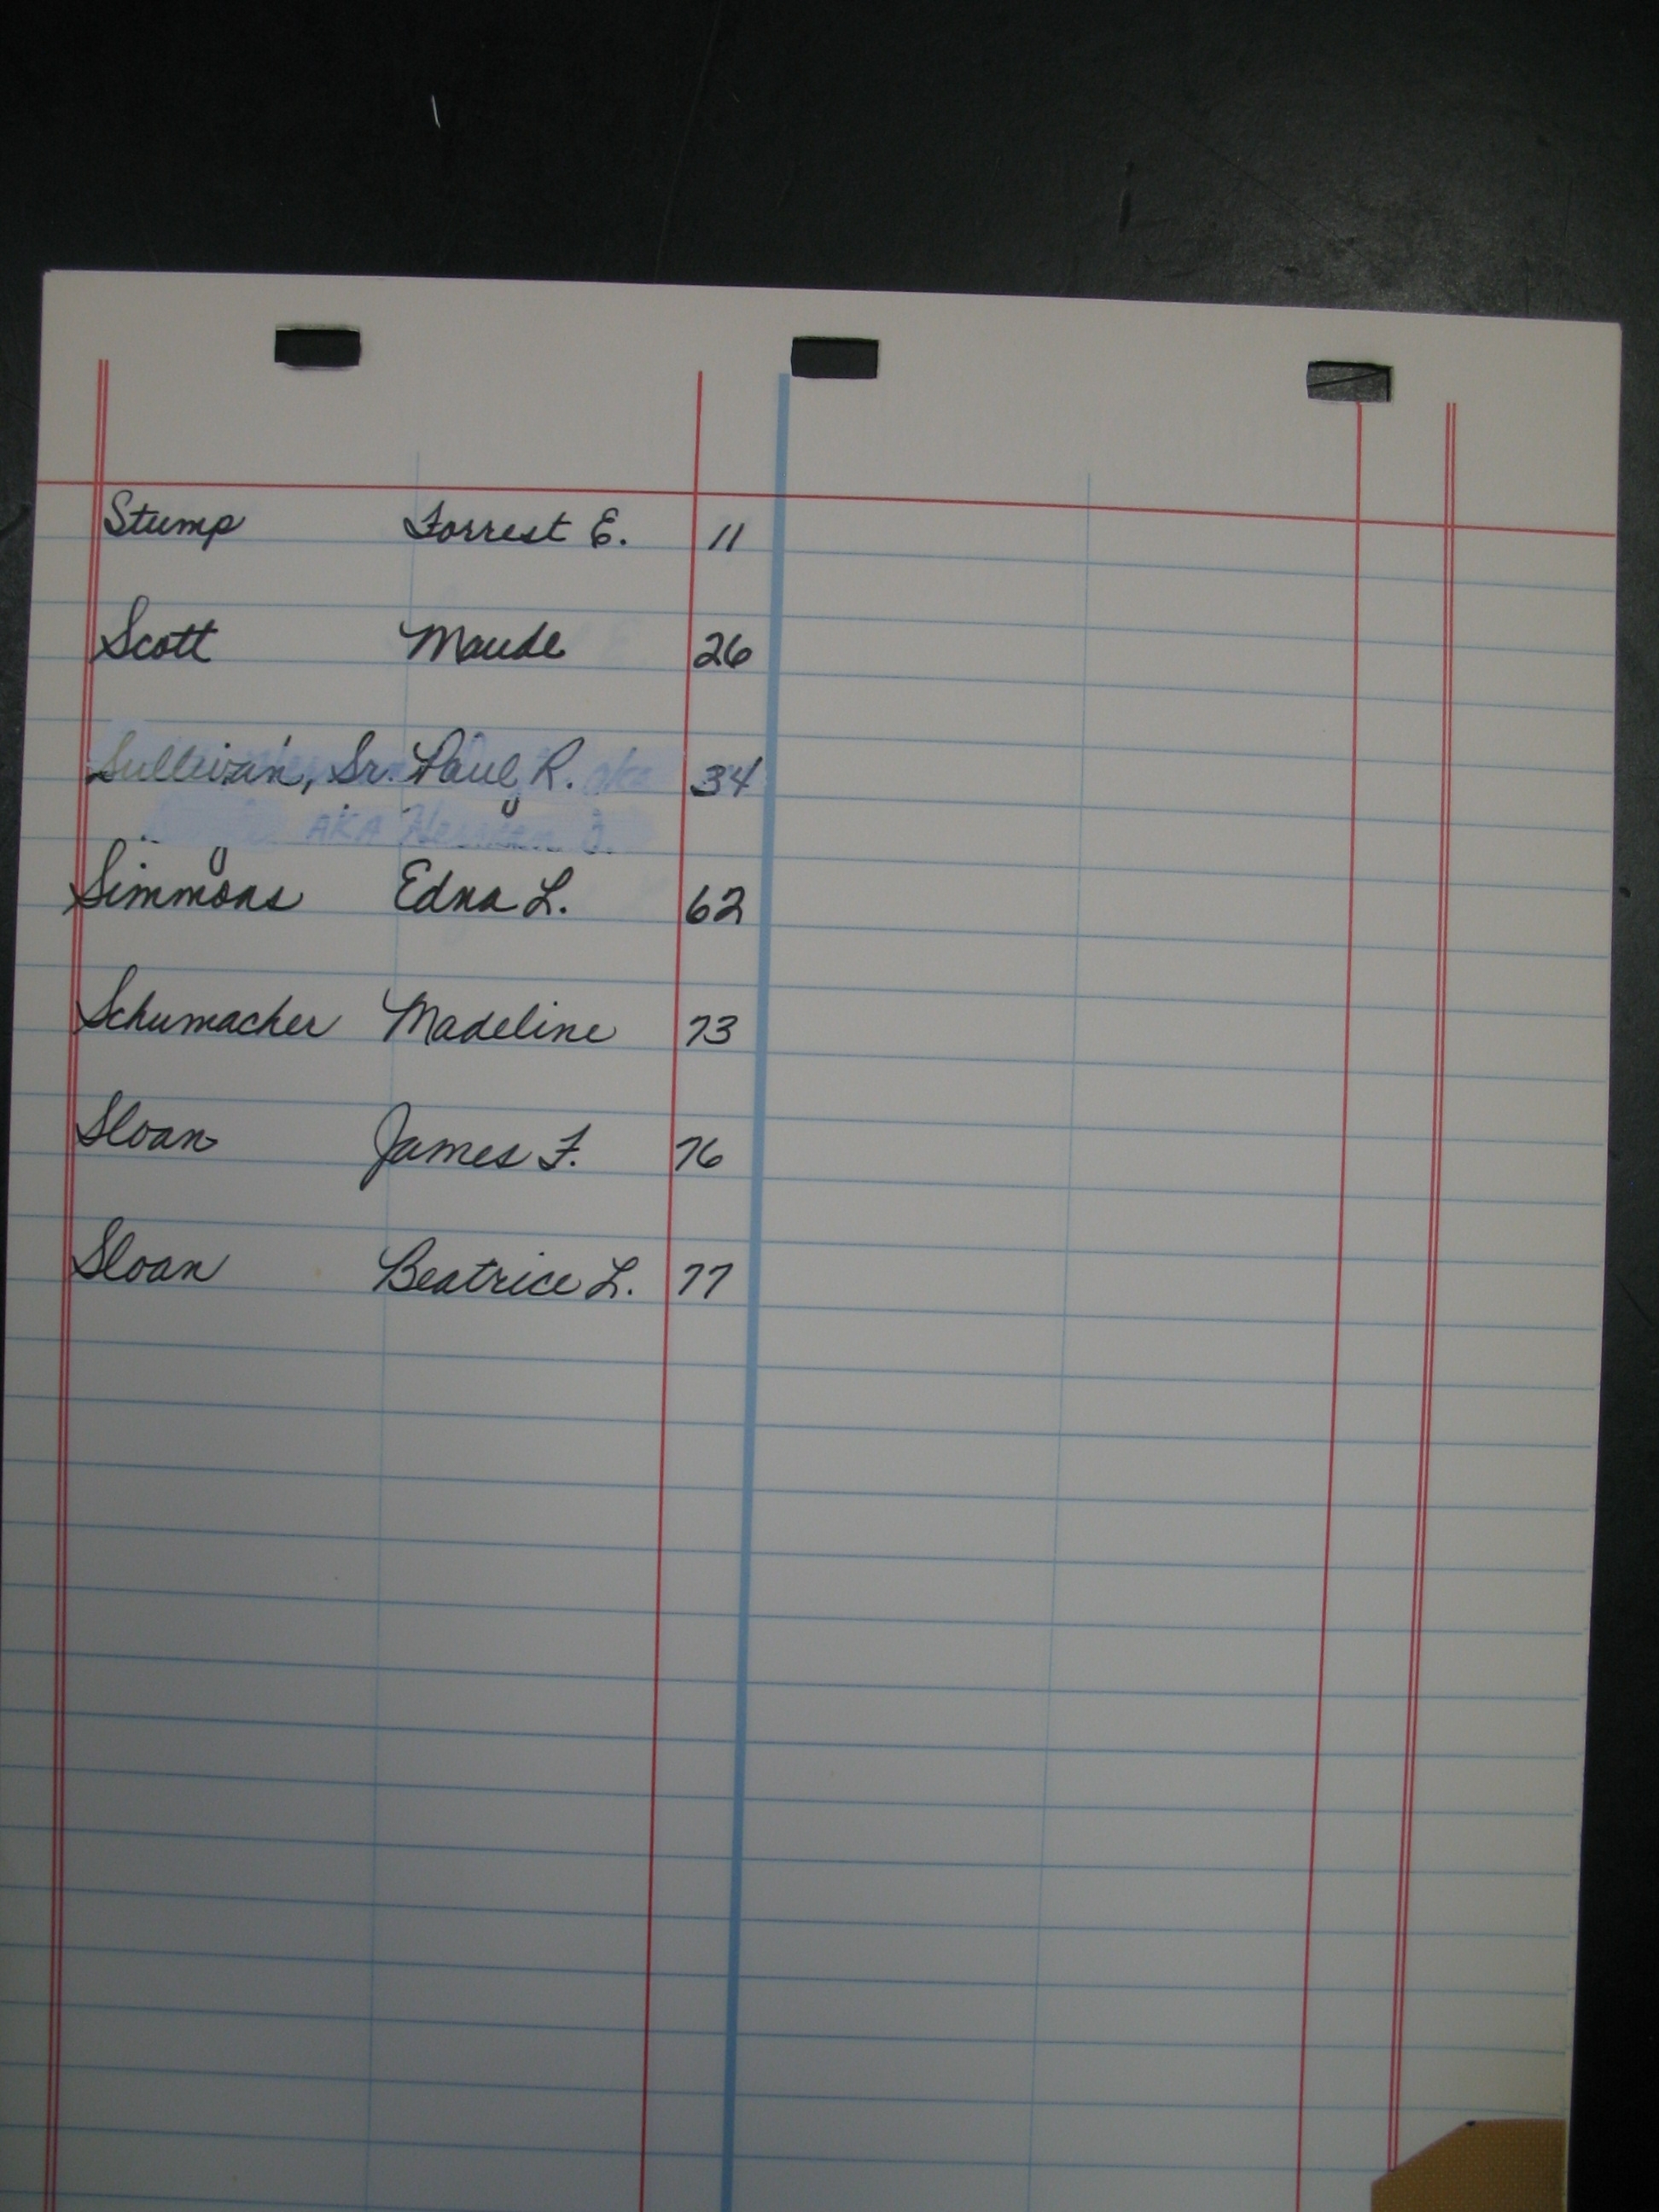 Stump Forrest E. 11
Scott Maude 26
Sullivan, Sr. Paul R. 34
Simmons Edna L. 62
Schumacher Madeline 73
Sloan James F. 76
Sloan Beatrice L. 77